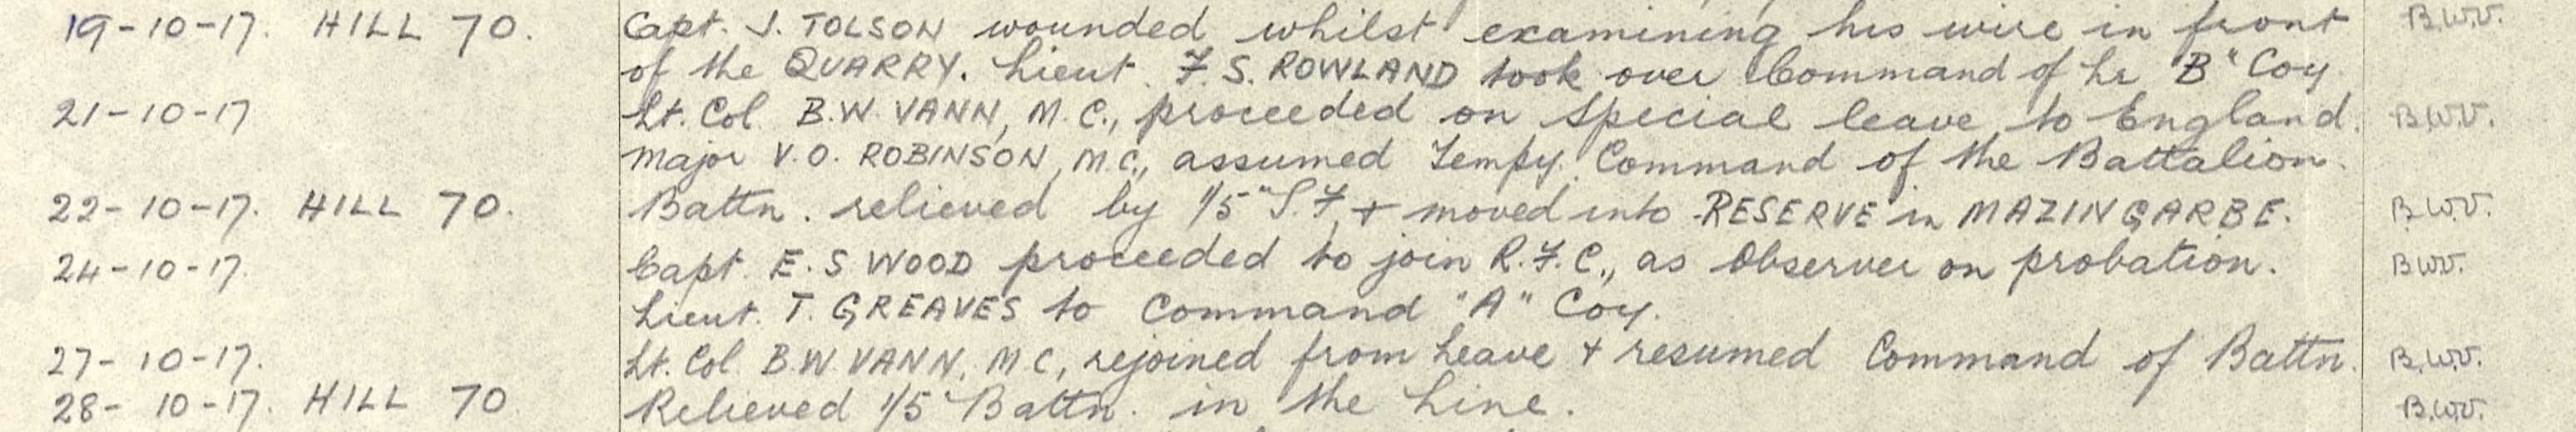 19-10-17. HILL 70. Capt. J. TOLSON wounded whilst examining his wire in front B.W.V.
of the QUARRY. Lieut. F. S. ROWLAND took over Command of "B" Coy
21-10-17 Lt. Col. B.W. VANN, M.C., proceeded on Special leave to England. B.W.V.
Major V.O. ROBINSON, M.C., assumed Tempy. Command of the Battalion.
22-10-17. HILL 70. Battn. relieved by 1/5" S.F. + moved into RESERVE in MAZINGARBE. B.W.V.
24-10-17. Capt. E.S WOOD proceeded to join R.F.C., as Observer on probation. B.W.V.
Lieut. T. GREAVES to Command "A" Coy.
27-10-17. Lt. Col B.W VANN, M.C, rejoined from Leave + resumed Command of Battn. B.W.V.
28-10-17. HILL 70 Relieved 1/5" Battn. in the Line. B.W.V.